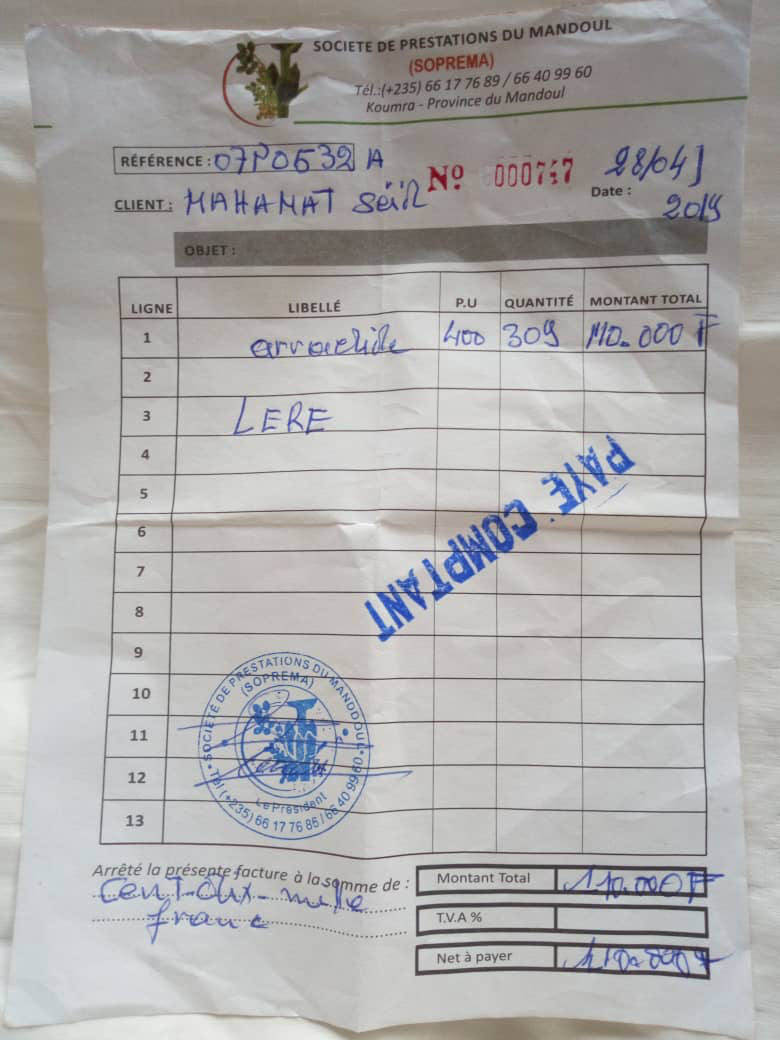 SOCIETE DE PRESTATIONS DU MANDOUL
(SOPREMA)
Tél.:(+235) 66 17 76 89 / 66 40 99 60
Koumra - Province du Mandoul
RÉFÉRENCE : 07P0532 A
Nº 000747
28/04/
Date : 2019
CLIENT : MAHAMAT
OBJET :
LIGNE LIBELLÉ P.U QUANTITÉ MONTANT TOTAL
1 arrachide 400 309 110.000 F
2
3 LERE
4
5
6
7
8
9
10
11
12
13
PAYE COMPTANT
SOCIETE DE PRESTATIONS DU MANDDOUL
(SOPREMA)
Le Président
Tél (+235) 66 17 76 86 / 66 40 99 60
Arrêté la présente facture à la somme de :
Cent-dix-mille
franc
Montant Total 110.000F
T.V.A %
Net à payer 110.000F